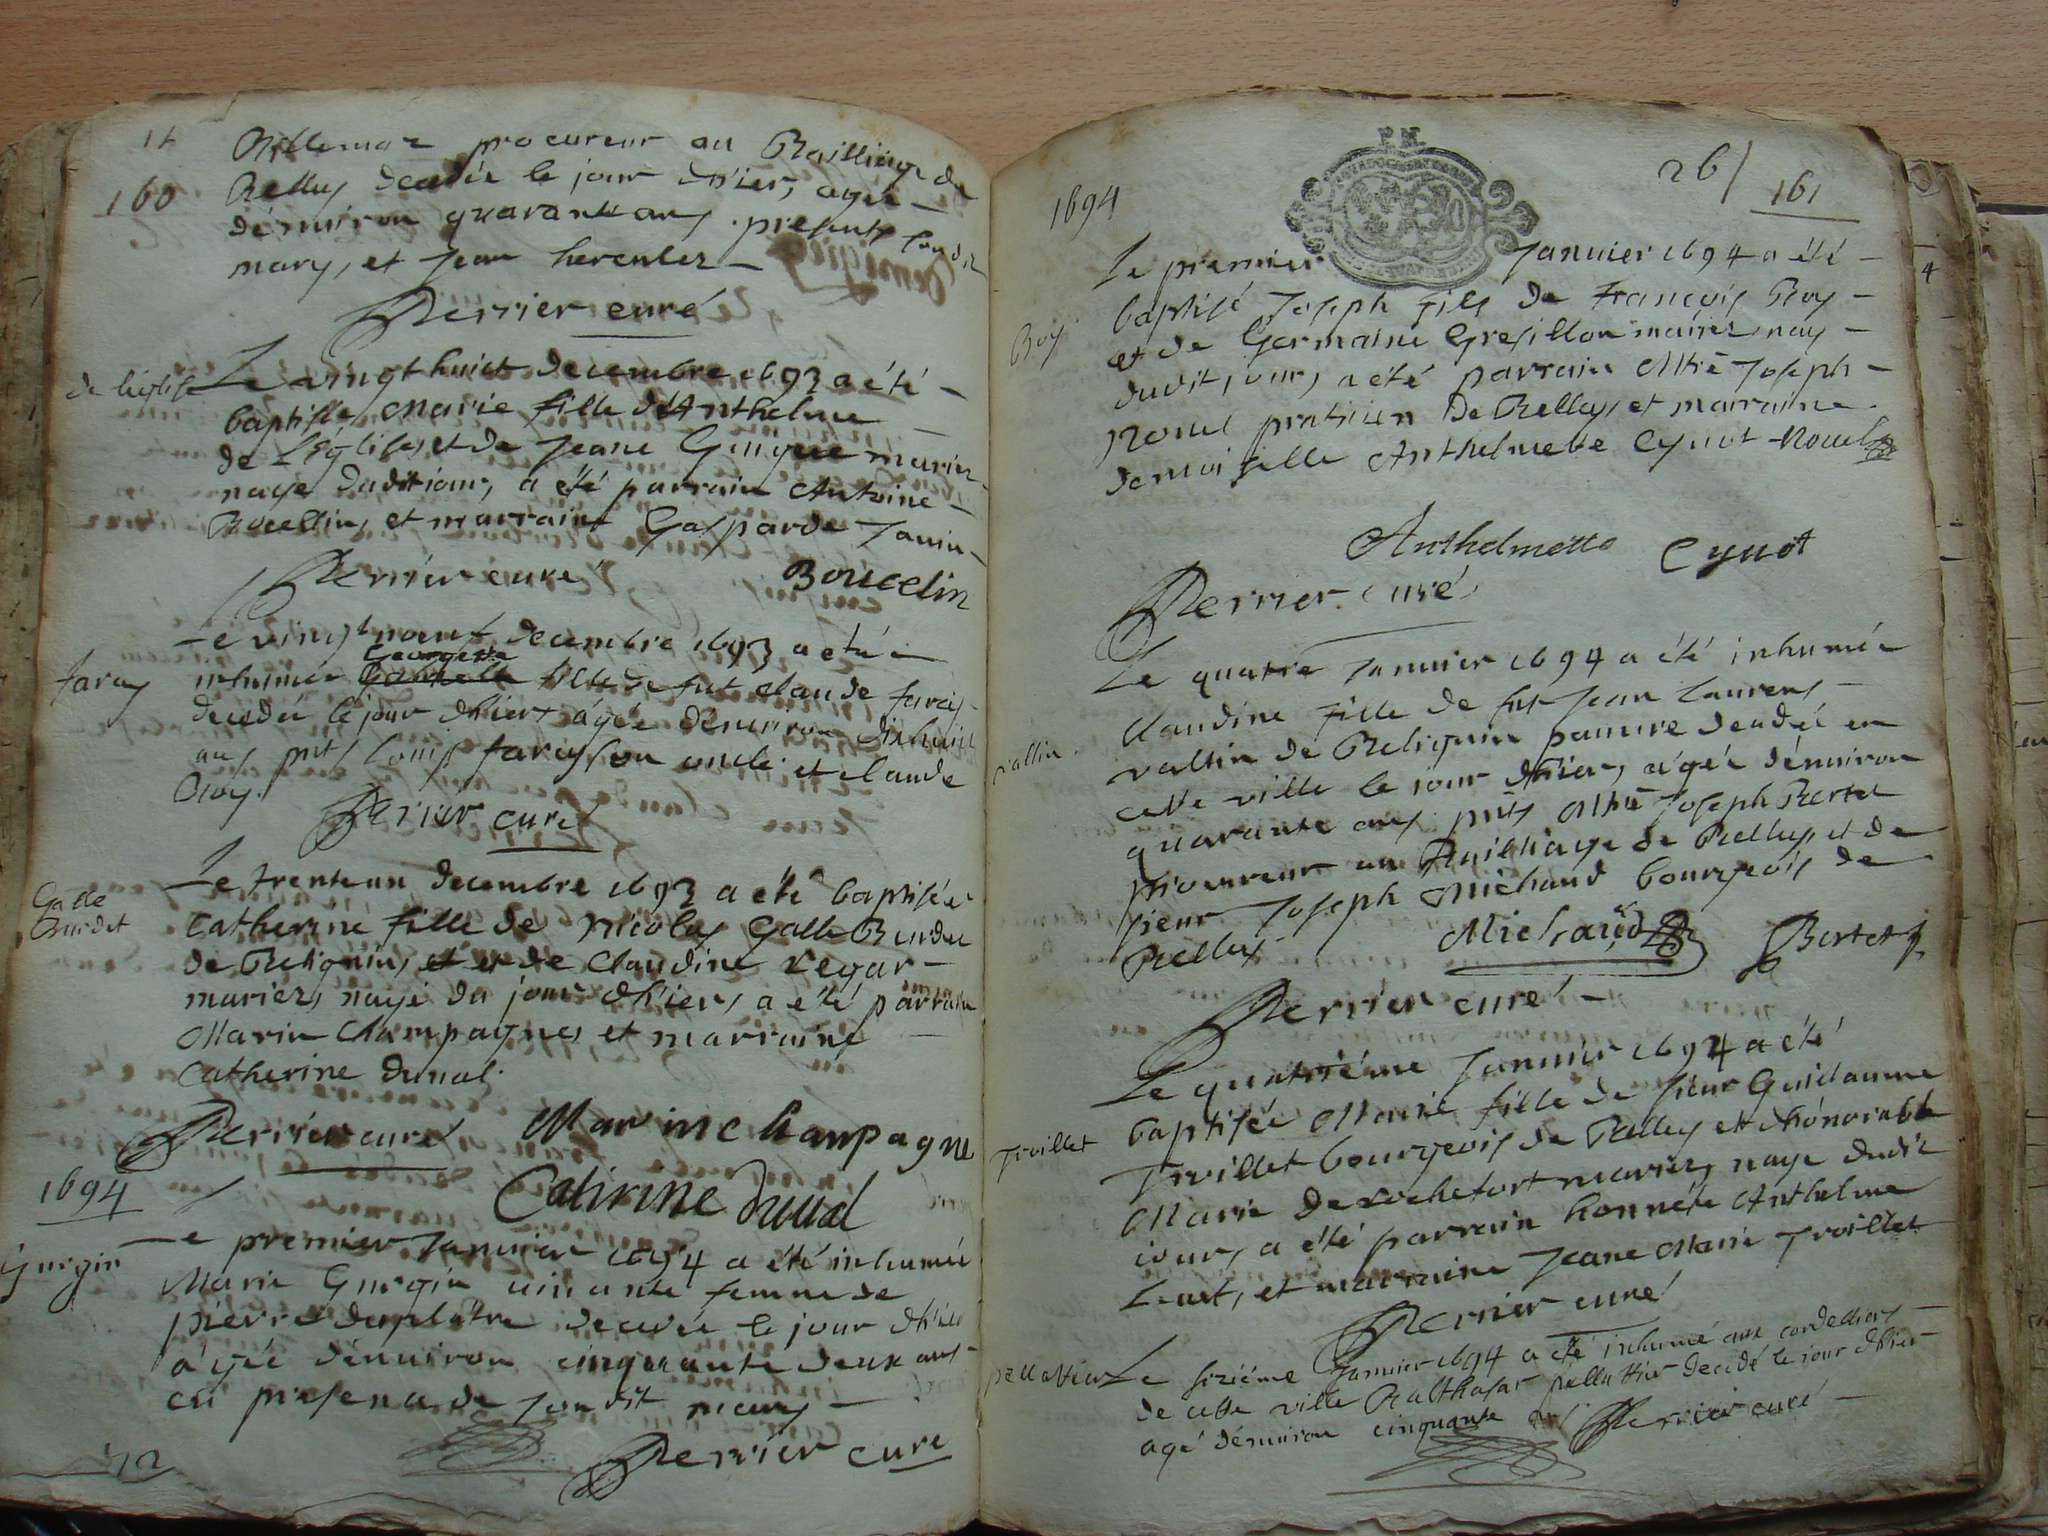 160
procureur au Bailliage de
Belley decedée le jour d'hier, agée
d'enuiron quarante ans. presents son dit
mary, et Jean
Perrier curé
de l'eglise
Le vingt huict decembre 1693 a été
baptisée Marie fille d'Anthelme
de L'Eglise, et de Jeane Guigue mariez
naye dudit jour, a été parrain Antoine
Boucellin, et marraine Gasparde Janin
Perrier curé Boucelin
faray
Le vingt neuf decembre 1693 a eté
inhumée Georgette fille de fut Claude faray
decedée le jour d'hier, agée d'enuiron dixhuict
ans pnts Louis faray son oncle et Claude
Roy.
Perrier curé
Galle
Burdet
Le trente un decembre 1693 a été baptisée
Catherine fille de Nicolas Galle Burdet
de Peugnin, et de Claudine
mariez, naye du jour d'hier, a été parrain
Marin Champagne, et marraine
Catherine Duual.
Perrier curé Marin Champagne
Catirine Duual
1694
Gurgin
Le premier Januier 1694 a été inhumée
Marie Gurgin viuante femme de
pierre duplatre decedée le jour d'hier
agée d'enuiron cinquante deux ans
en presence de son dit mary
Perrier curé
1694
26
161
Roy.
Le premier Januier 1694 a été
baptisé Joseph fils de François Roy
et de Germaine Gresillon mariez, nay
dudit jour, a été parrain Mre Joseph
Nouel praticien de Belley, et marraine
demoiselle Anthelmete Cynot Nouel
Anthelmette Cynot
Perrier curé
vallin.
Le quatre Januier 1694 a été inhumée
Claudine fille de fut Jean Laurens
vallin de Peugnin pauure decedée en
cette ville le jour d'hier, agée d'enuiron
quarante ans. pnts Mtre Joseph Bertet
procureur au Bailliage de Belley, et de
sieur Joseph Michaud bourgeois de
Belley.
Michaud Bertet
Perrier curé
Troillet
Le quatriéme Januier 1694 a été
baptisée Marie fille de sieur Guillaume
Troillet bourgeois de Belley et d'honorable
Marie de rochefort mariez, naye dudit
jour, a été parrain honnéte Anthelme
et marraine Jeane Marie Troillet
Perrier curé
pellattier
Le siziéme Januier 1694 a été inhumé aux cordelliers
de cette ville Balthasar pellattier decedé le jour d'hier
agé d'enuiron cinquante ans. Perrier curé